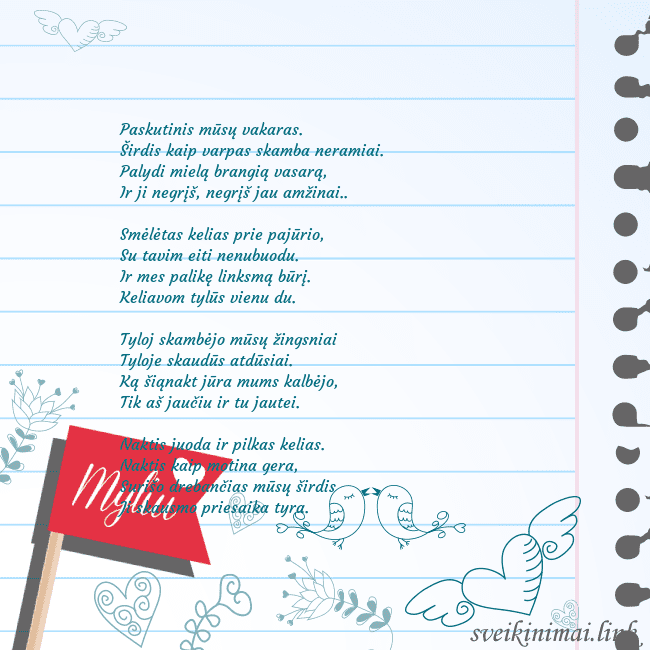 Paskutinis mūsų vakaras.
Širdis kaip varpas skamba neramiai.
Palydi mielą brangią vasarą,
Ir ji negrįš, negrįš jau amžinai..
Smėlėtas kelias prie pajūrio,
Su tavim eiti nenubuodu.
Ir mes palikę linksmą būrį.
Keliavom tylūs vienu du.
Tyloj skambėjo mūsų žingsniai
Tyloje skaudūs atdūsiai.
Ką šiąnakt jūra mums kalbėjo,
Tik aš jaučiu ir tu jautei.
Naktis juoda ir pilkas kelias.
Naktis kaip motina gera,
Surišo drebančias mūsų širdis
Ji skausmo priesaika tyra.
Myliu
sveikinimai.link